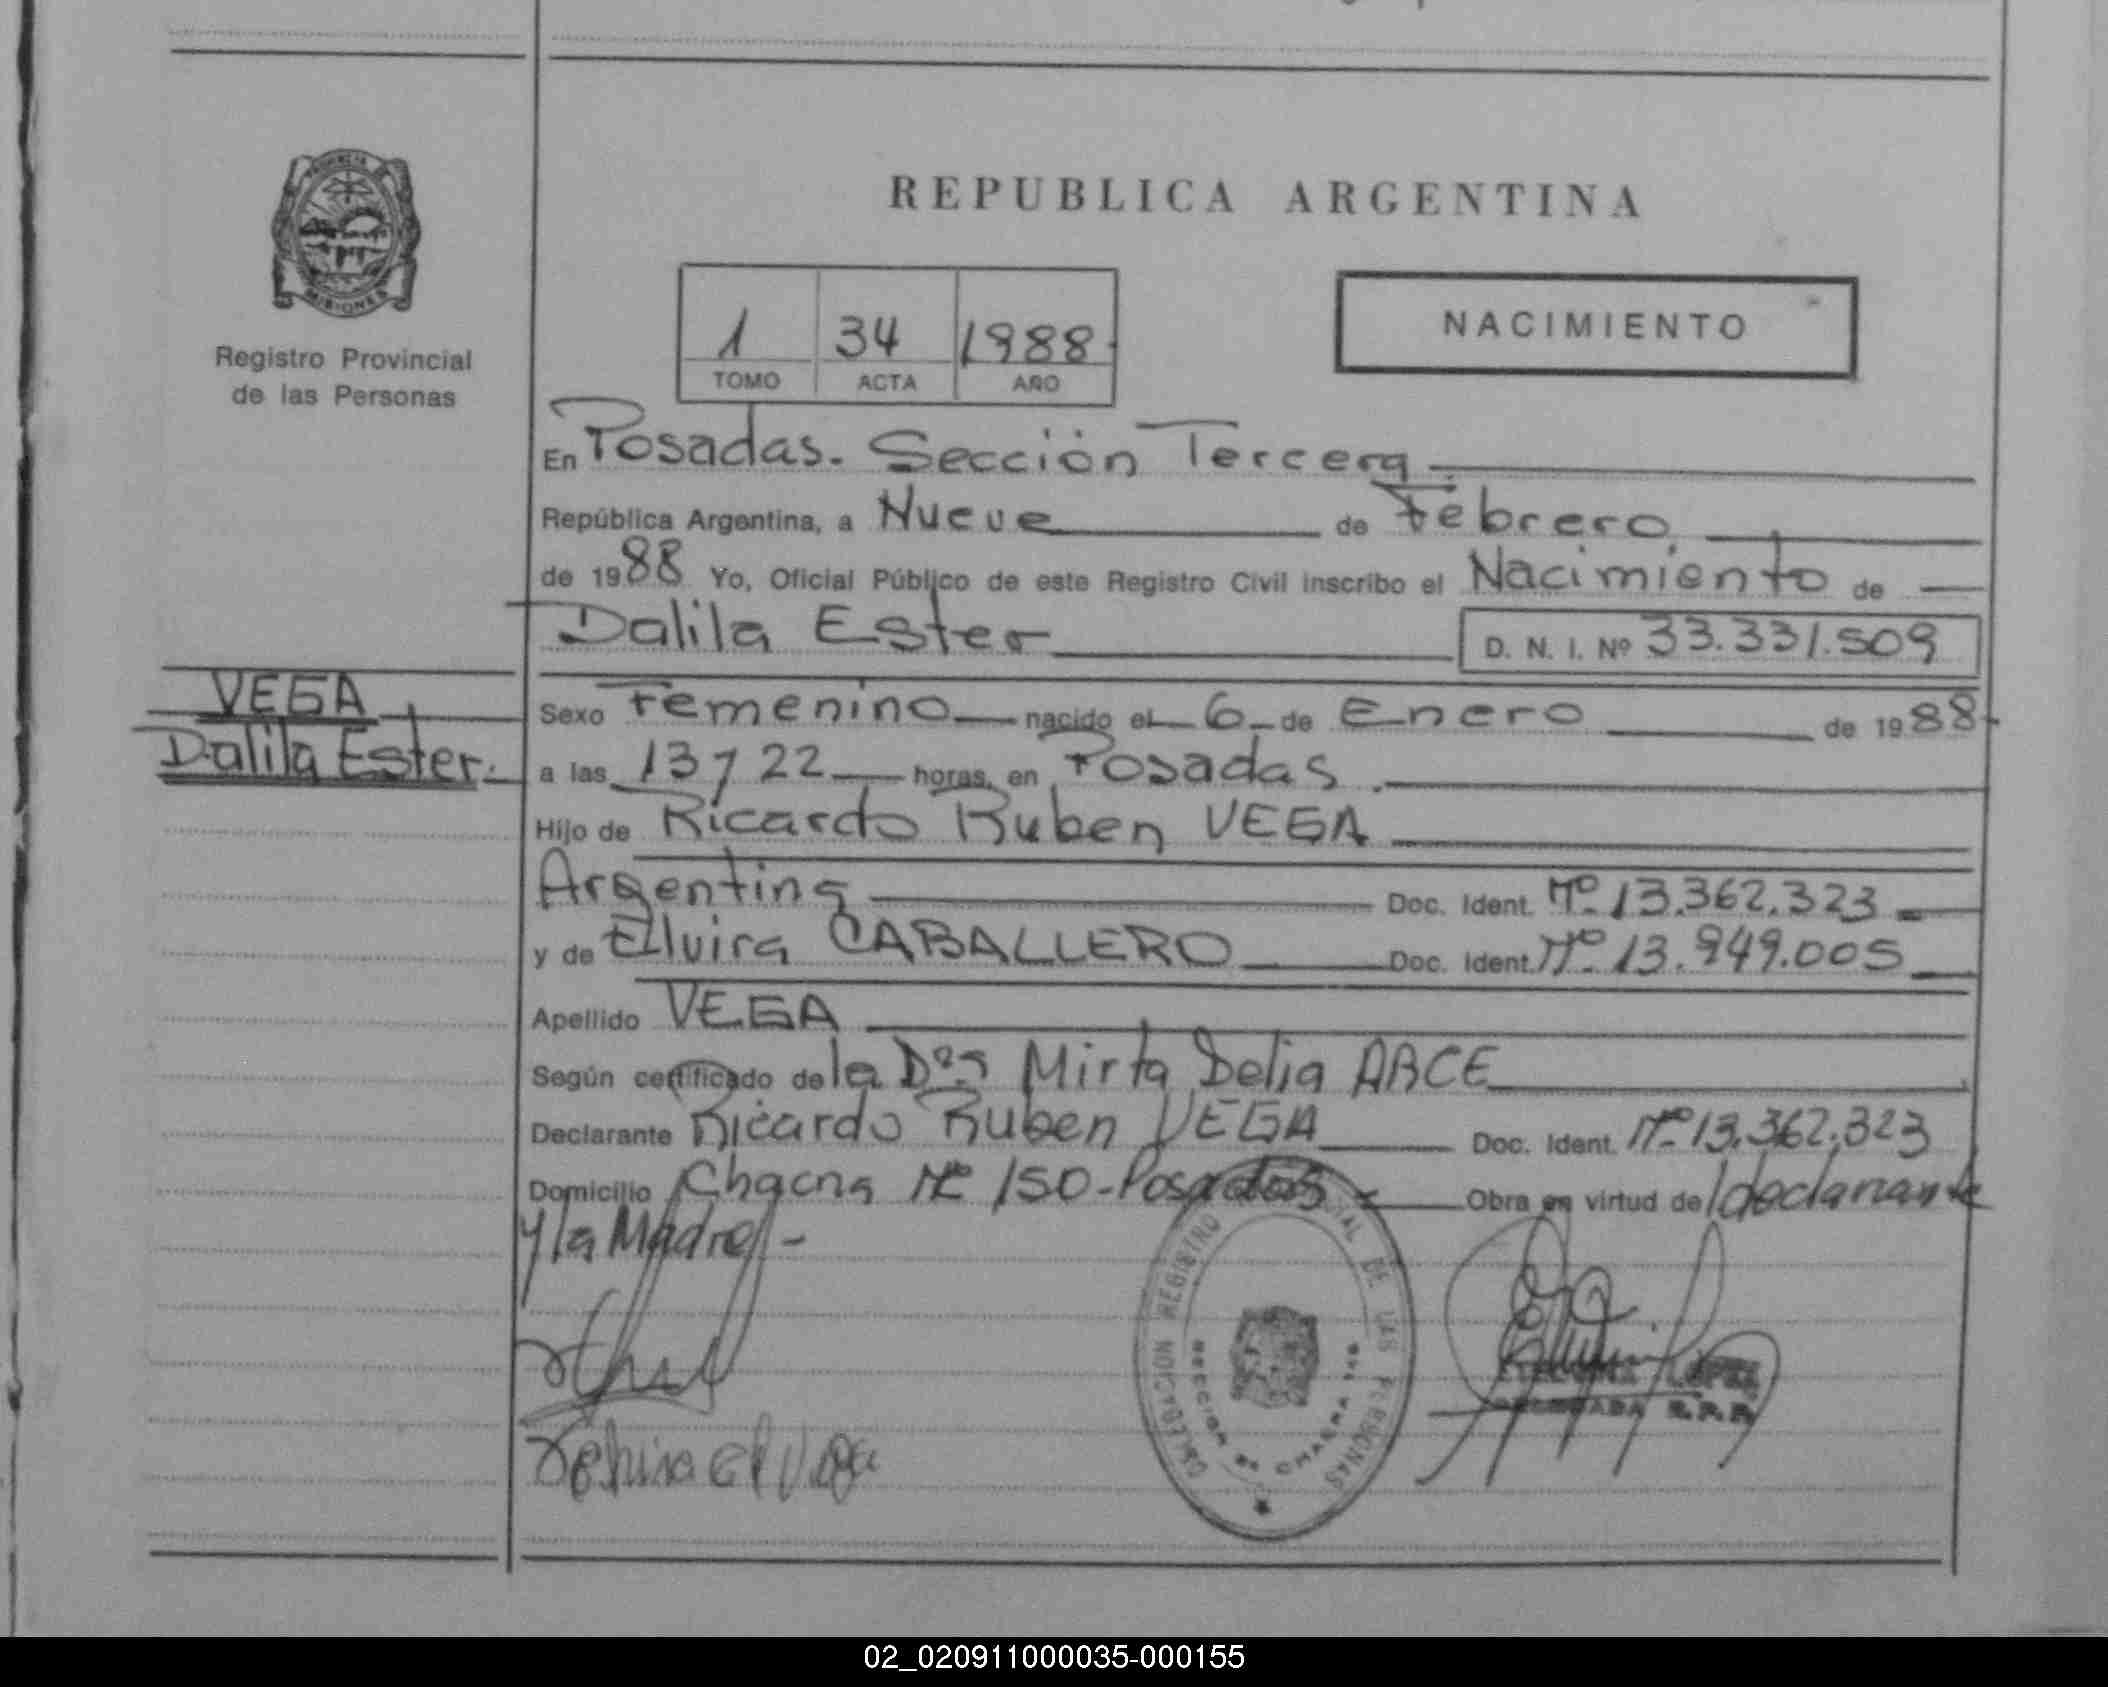 REPUBLICA ARGENTINA
MISIONES
Registro Provincial
de las Personas
1 34 1988
TOMO ACTA AÑO
NACIMIENTO
En Posadas. Sección Tercera
República Argentina, a Nueve de Febrero
de 1988 Yo, Oficial Público de este Registro Civil inscribo el Nacimiento de
Dalila Ester D. N. I. Nº 33.331.509
VEGA
Dalila Ester.
Sexo Femenino nacido el 6 de Enero de 1988
a las 13 y 22 horas, en Posadas
Hijo de Ricardo Ruben VEGA
Argentina Doc. Ident. Nº 13.362.323
y de Elvira CABALLERO Doc. Ident. Nº 13.949.005
Apellido VEGA
Según certificado de la Dra Mirta Delia ARCE
Declarante Ricardo Ruben VEGA Doc. Ident. Nº 13.362.323
Domicilio Chacra Nº 150-Posadas Obra en virtud de declarante
y la Madre -
DELEGACION REGISTRO PROVINCIAL DE LAS PERSONAS
LOPEZ
R.P.P.
02_020911000035-000155